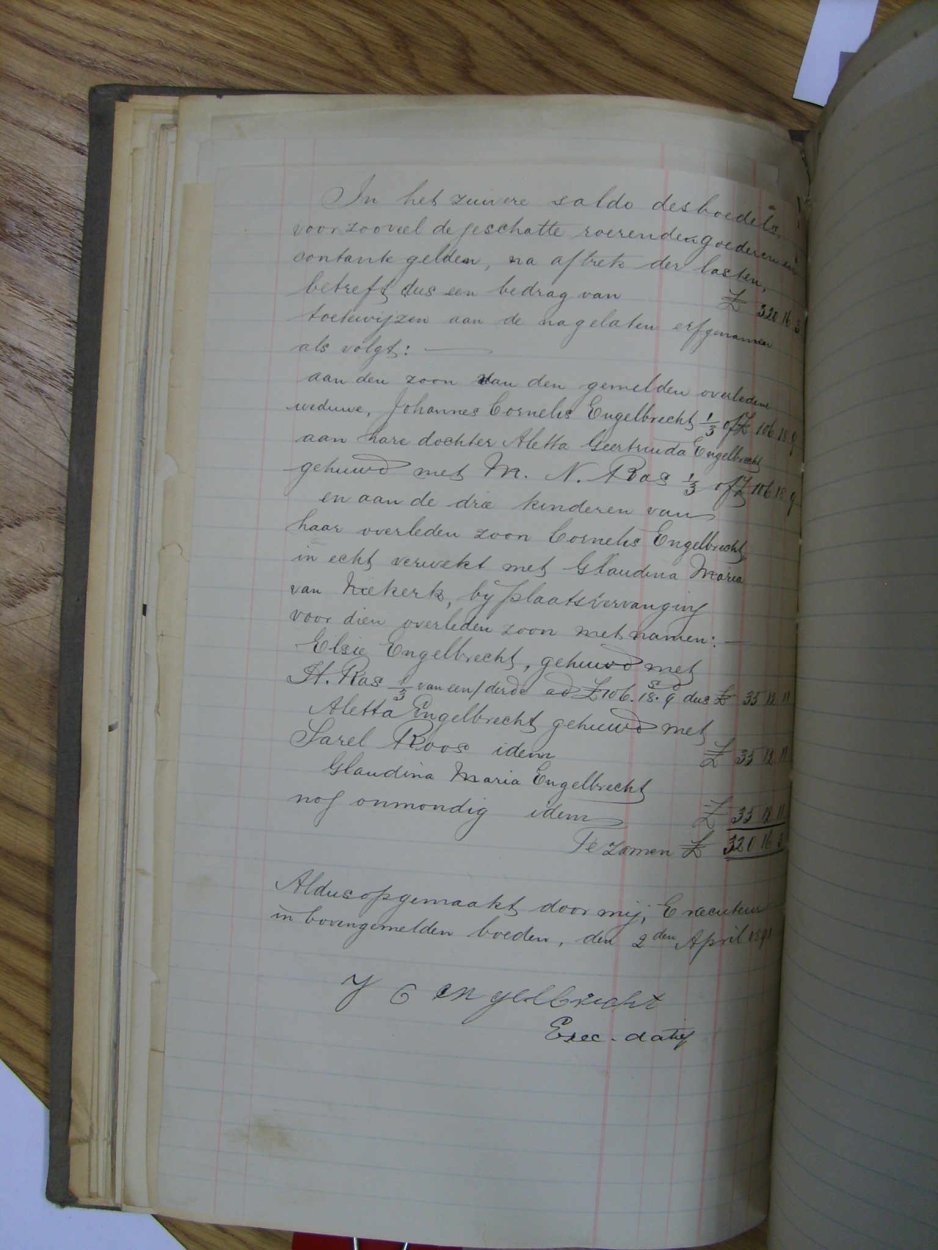 In het zuivere saldo des boedels,
voor zooveel de geschatte roerende goederen en
contante gelden, na aftrek der lasten,
betreft dus een bedrag van £ 320 16 3
toetewijzen aan de nagelaten erfgenamen
als volgt: —
aan den zoon van den gemelden overledene
weduwe, Johannes Cornelis Engelbrecht 1/3 of £ 106 18 9
aan hare dochter Aletta Geertruida Engelbrecht
gehuwd met M. N. Ras 1/3 of £ 106 18 9
en aan de drie kinderen van
haar overleden zoon Cornelis Engelbrecht
in echt verwekt met Glaudina Maria
van Niekerk, by plaatsvervanging
voor dien overleden zoon met namen: —
Elsie Engelbrecht, gehuwd met
H. Ras 1/3 van een/derde ad £106.18.9 dus £ 35 12 11
Aletta Engelbrecht gehuwd met
Sarel Roos idem £ 35 12 11
Glaudina Maria Engelbrecht
nog onmondig idem £ 35 12 11
Te zamen £ 320 16 3
Aldus opgemaakt door mij, Executeur
in bovengemelden boedel, den 2den April 1891
J C Engelbrecht
Exec. datif